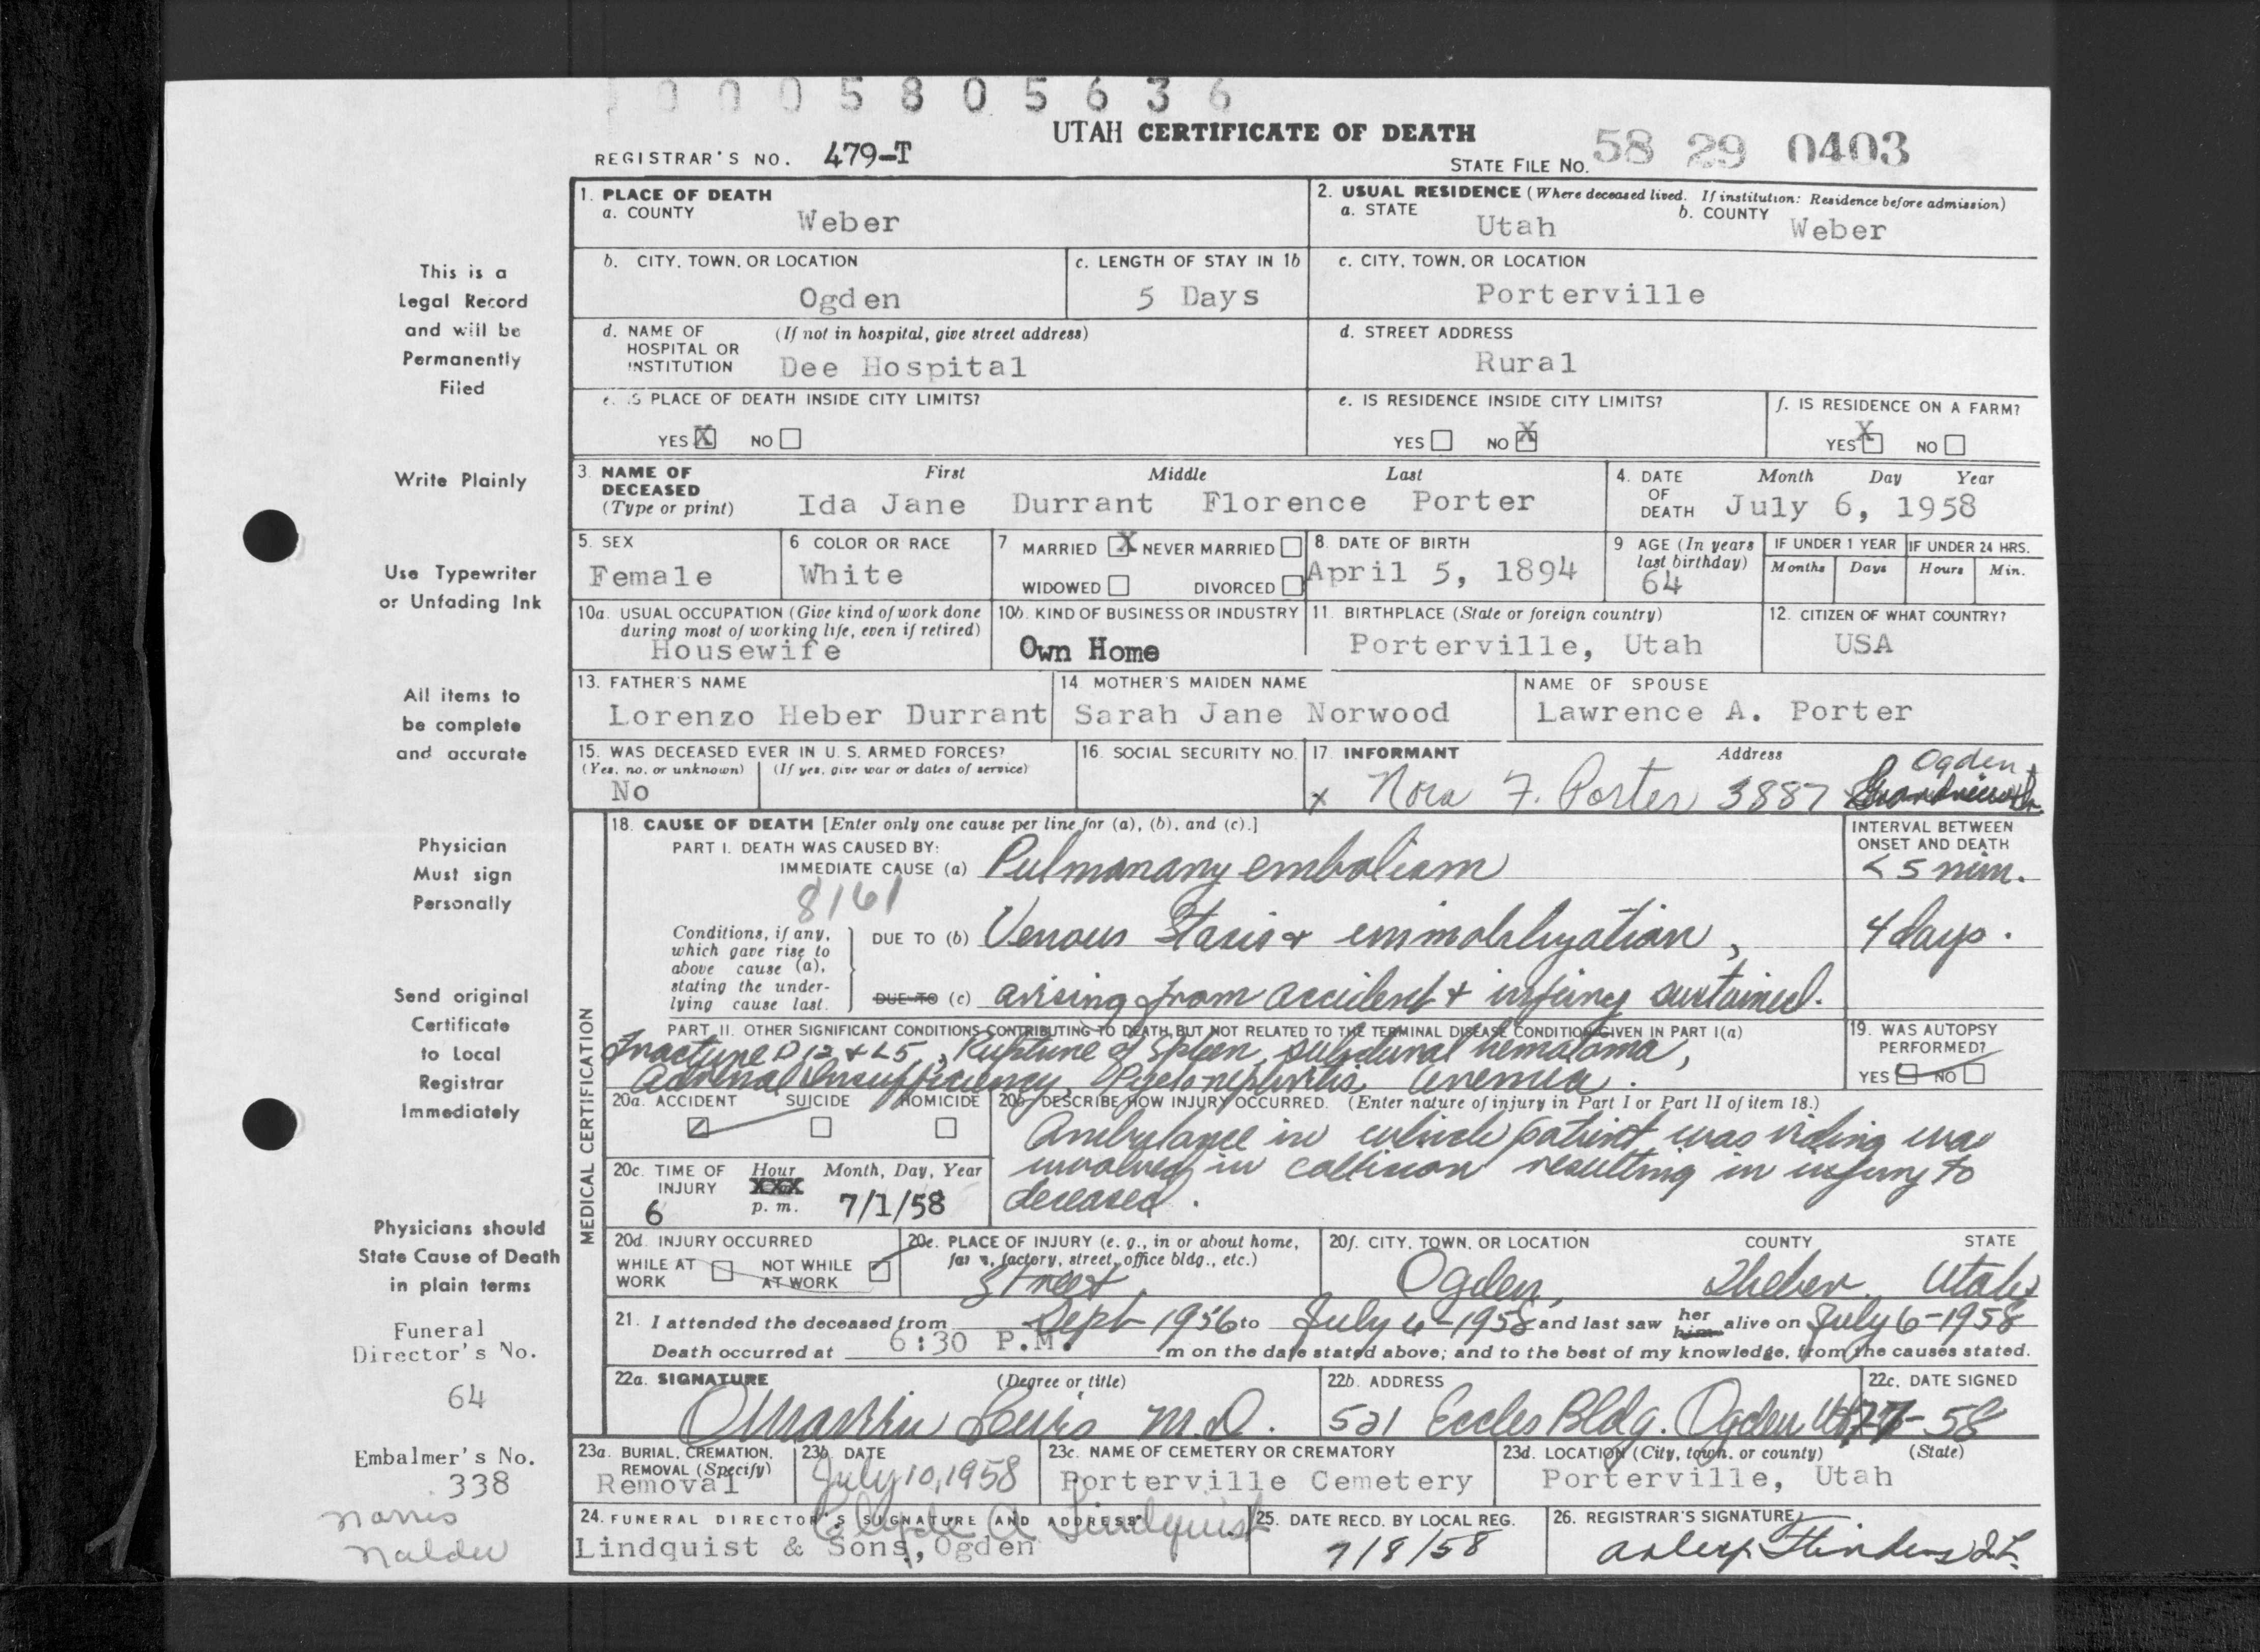 0005805636
UTAH CERTIFICATE OF DEATH
REGISTRAR'S NO. 479-T
STATE FILE NO. 58 29 0403
This is a
Legal Record
and will be
Permanently
Filed
Write Plainly
Use Typewriter
or Unfading Ink
All items to
be complete
and accurate
Physician
Must sign
Personally
Send original
Certificate
to Local
Registrar
Immediately
Physicians should
State Cause of Death
in plain terms
Funeral
Director's No.
64
Embalmer's No.
338
Norris
Nalder
1. PLACE OF DEATH
a. COUNTY Weber
2. USUAL RESIDENCE (Where deceased lived. If institution: Residence before admission)
a. STATE Utah b. COUNTY Weber
b. CITY, TOWN, OR LOCATION Ogden
c. LENGTH OF STAY IN 1b 5 Days
c. CITY, TOWN, OR LOCATION Porterville
d. NAME OF HOSPITAL OR INSTITUTION (If not in hospital, give street address) Dee Hospital
d. STREET ADDRESS Rural
e. IS PLACE OF DEATH INSIDE CITY LIMITS?
YES X NO
e. IS RESIDENCE INSIDE CITY LIMITS?
YES NO X
f. IS RESIDENCE ON A FARM?
YES X NO
3. NAME OF DECEASED (Type or print) First Middle Last
Ida Jane Durrant Florence Porter
4. DATE OF DEATH Month Day Year
July 6, 1958
5. SEX Female
6 COLOR OR RACE White
7 MARRIED X NEVER MARRIED
WIDOWED DIVORCED
8. DATE OF BIRTH April 5, 1894
9 AGE (In years last birthday) 64
IF UNDER 1 YEAR Months Days
IF UNDER 24 HRS. Hours Min.
10a. USUAL OCCUPATION (Give kind of work done during most of working life, even if retired) Housewife
10b. KIND OF BUSINESS OR INDUSTRY Own Home
11. BIRTHPLACE (State or foreign country) Porterville, Utah
12. CITIZEN OF WHAT COUNTRY? USA
13. FATHER'S NAME Lorenzo Heber Durrant
14. MOTHER'S MAIDEN NAME Sarah Jane Norwood
NAME OF SPOUSE Lawrence A. Porter
15. WAS DECEASED EVER IN U. S. ARMED FORCES?
(Yes, no, or unknown) (If yes, give war or dates of service)
No
16. SOCIAL SECURITY NO.
17. INFORMANT Address
x Nora F. Porter 3887 Ogden
18. CAUSE OF DEATH [Enter only one cause per line for (a), (b), and (c).]
INTERVAL BETWEEN ONSET AND DEATH
PART I. DEATH WAS CAUSED BY:
IMMEDIATE CAUSE (a) Pulmonary embolism < 5 min.
8161
Conditions, if any, which gave rise to above cause (a), stating the underlying cause last.
DUE TO (b) Venous Stasis + immobilization, 4 days.
DUE TO (c) arising from accident + injury sustained.
PART II. OTHER SIGNIFICANT CONDITIONS CONTRIBUTING TO DEATH BUT NOT RELATED TO THE TERMINAL DISEASE CONDITION GIVEN IN PART I(a)
Fracture D 12 + L5, Rupture of Spleen, subdural hematoma,
Adrenal Insufficiency, Pyelonephritis, Anemia.
19. WAS AUTOPSY PERFORMED?
YES NO
MEDICAL CERTIFICATION
20a. ACCIDENT SUICIDE HOMICIDE
20b. DESCRIBE HOW INJURY OCCURRED. (Enter nature of injury in Part I or Part II of item 18.)
Ambulance in which patient was riding was
involved in collision resulting in injury to
deceased.
20c. TIME OF INJURY Hour Month, Day, Year
6 XXX p. m. 7/1/58
20d. INJURY OCCURRED
WHILE AT WORK NOT WHILE AT WORK
20e. PLACE OF INJURY (e. g., in or about home, farm, factory, street, office bldg., etc.)
Street
20f. CITY, TOWN, OR LOCATION COUNTY STATE
Ogden, Weber Utah
21. I attended the deceased from Sept 1956 to July 6-1958 and last saw her him alive on July 6-1958
Death occurred at 6:30 P.M. m on the date stated above; and to the best of my knowledge, from the causes stated.
22a. SIGNATURE (Degree or title)
O Marvin Lewis M.D.
22b. ADDRESS 521 Eccles Bldg. Ogden Ut
22c. DATE SIGNED 7-7-58
23a. BURIAL, CREMATION, REMOVAL (Specify) Removal
23b. DATE July 10, 1958
23c. NAME OF CEMETERY OR CREMATORY Porterville Cemetery
23d. LOCATION (City, town, or county) (State)
Porterville, Utah
24. FUNERAL DIRECTOR'S SIGNATURE AND ADDRESS
Clyde A Lindquist
Lindquist & Sons, Ogden
25. DATE RECD. BY LOCAL REG. 7/8/58
26. REGISTRAR'S SIGNATURE